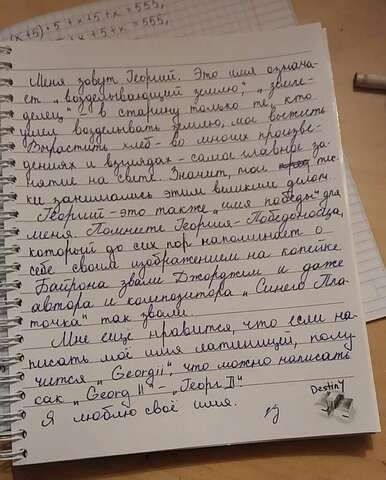 (x+5)·5 + x+5+x = 555,
+x+x = 555,
Меня зовут Георгий. Это имя означа-
ет „возделывающий землю," „земле-
делец" – в старину только те, кто
умел возделывать землю, мог вместить
Вырастить хлеб – во многих произве-
дениях и взглядах – самое главное за-
нятие на свете. Значит, мои тёз-
ки занимались этим великим делом.
Георгий – это также „имя победы" для
меня. Помните Георгия-Победоносца,
который до сих пор напоминает о
себе своим изображением на копейке.
Байрона звали Джорджем и даже
автора и композитора „Синего Пла-
точка" так звали.
Мне ещё нравится, что если на-
писать моё имя латиницей, полу-
чится „Georgii", что можно написать
как „Georg II" – „Георг II"
Я люблю своё имя.
Destiny